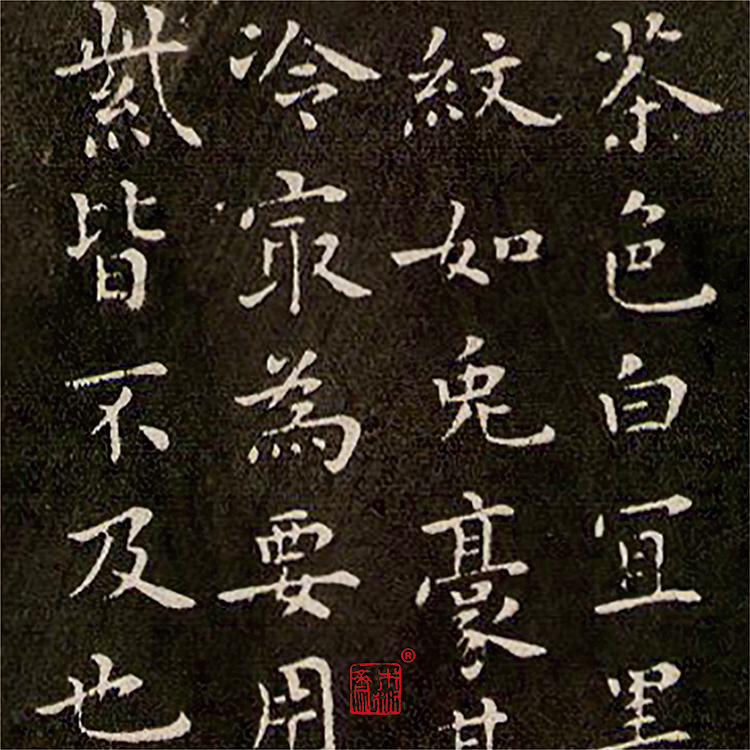 茶色白冝黑
紋如兔豪其
冷㝡為要用
紫皆不及也
®